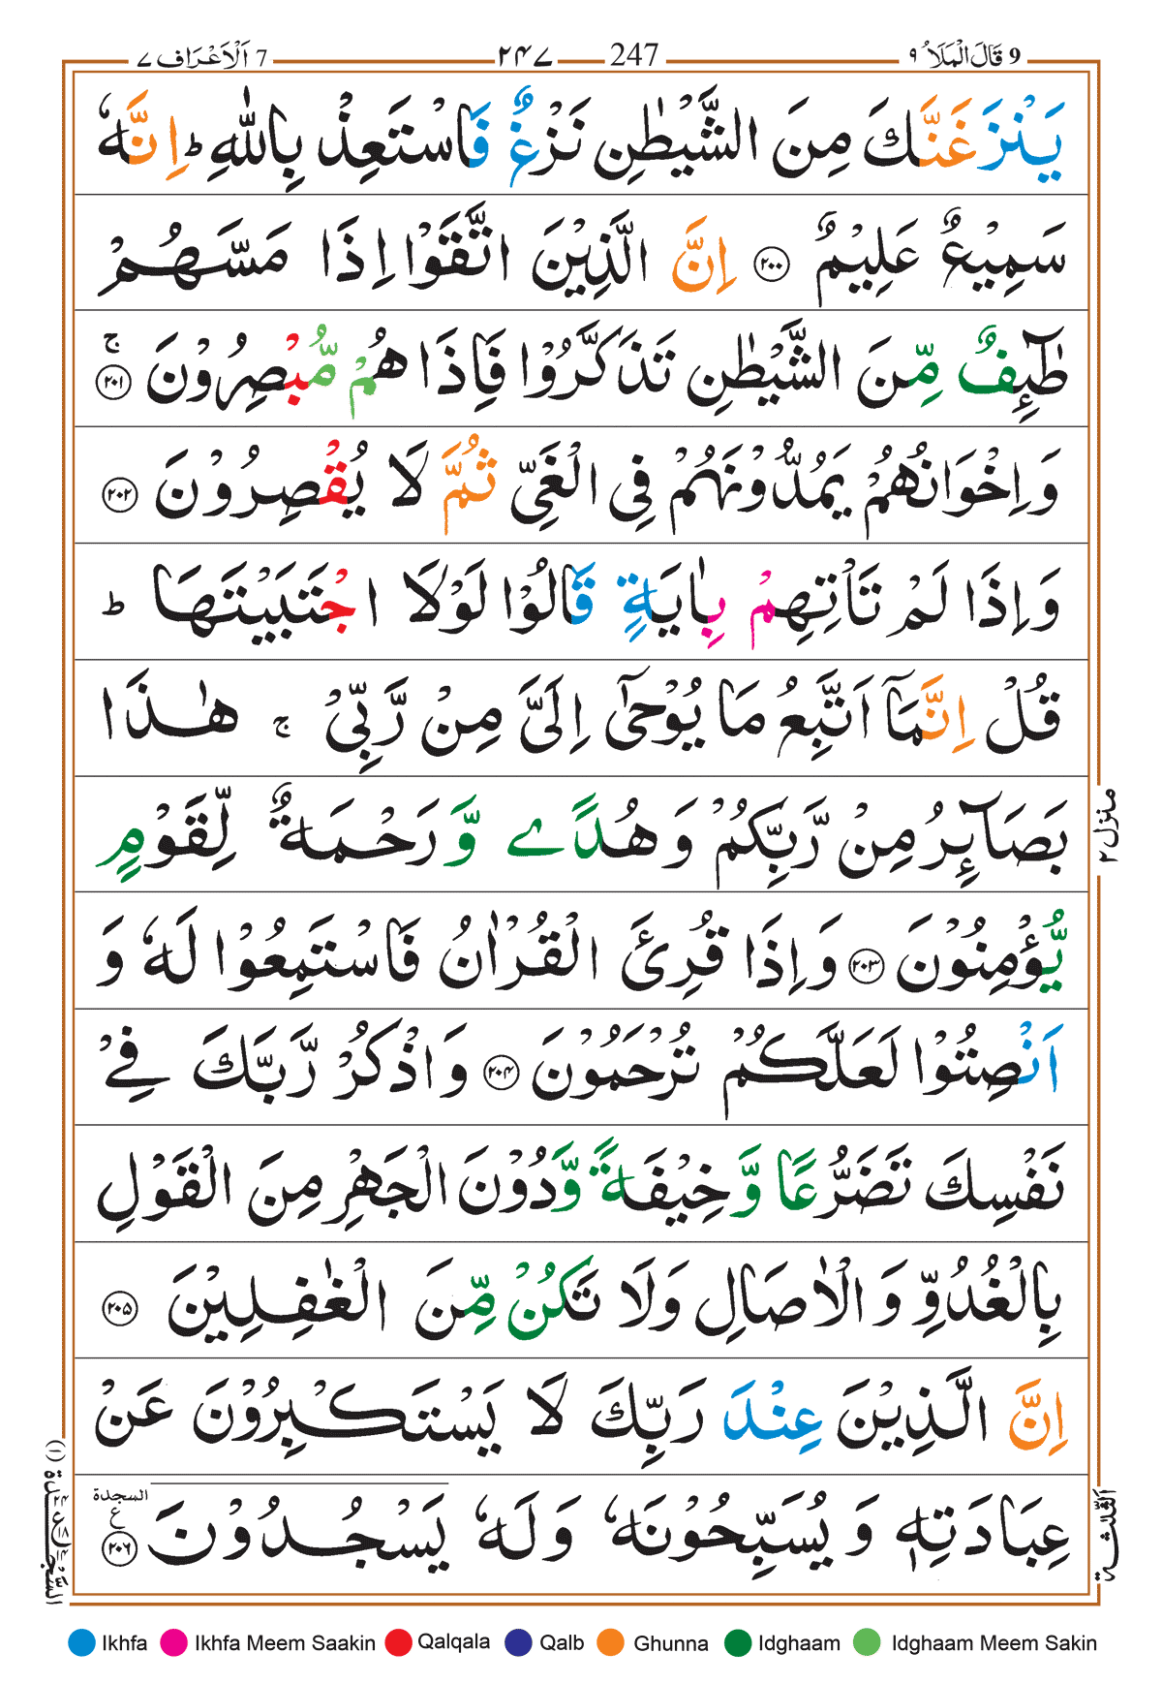 9 قَالَ الْمَلَاُ ٩ 247 ٢٤٧ 7 اَلْاَعْرَاف ٧
يَنْزَغَنَّكَ مِنَ الشَّيْطٰنِ نَزْغٌ فَاسْتَعِذْ بِاللّٰهِ ؕ اِنَّهٗ
سَمِيْعٌ عَلِيْمٌ ﴿٢٠٠﴾ اِنَّ الَّذِيْنَ اتَّقَوْا اِذَا مَسَّهُمْ
طٰٓئِفٌ مِّنَ الشَّيْطٰنِ تَذَكَّرُوْا فَاِذَا هُمْ مُّبْصِرُوْنَ ۚ ﴿٢٠١﴾
وَاِخْوَانُهُمْ يَمُدُّوْنَهُمْ فِى الْغَىِّ ثُمَّ لَا يُقْصِرُوْنَ ﴿٢٠٢﴾
وَاِذَا لَمْ تَاْتِهِمْ بِاٰيَةٍ قَالُوْا لَوْلَا اجْتَبَيْتَهَا ؕ
قُلْ اِنَّمَاۤ اَتَّبِعُ مَا يُوْحٰٓى اِلَىَّ مِنْ رَّبِّىْ ۚ هٰذَا
بَصَآئِرُ مِنْ رَّبِّكُمْ وَهُدًى وَّرَحْمَةٌ لِّقَوْمٍ
يُّؤْمِنُوْنَ ﴿٢٠٣﴾ وَاِذَا قُرِئَ الْقُرْاٰنُ فَاسْتَمِعُوْا لَهٗ وَ
اَنْصِتُوْا لَعَلَّكُمْ تُرْحَمُوْنَ ﴿٢٠٤﴾ وَاذْكُرْ رَّبَّكَ فِىْ
نَفْسِكَ تَضَرُّعًا وَّخِيْفَةً وَّدُوْنَ الْجَهْرِ مِنَ الْقَوْلِ
بِالْغُدُوِّ وَالْاٰصَالِ وَلَا تَكُنْ مِّنَ الْغٰفِلِيْنَ ﴿٢٠٥﴾
اِنَّ الَّذِيْنَ عِنْدَ رَبِّكَ لَا يَسْتَكْبِرُوْنَ عَنْ
عِبَادَتِهٖ وَيُسَبِّحُوْنَهٗ وَلَهٗ يَسْجُدُوْنَ ﴿٢٠٦﴾ السجدة ع
منزل ٢
اَلثّلٰثة
السَّجْدَة (١)
Ikhfa Ikhfa Meem Saakin Qalqala Qalb Ghunna Idghaam Idghaam Meem Sakin